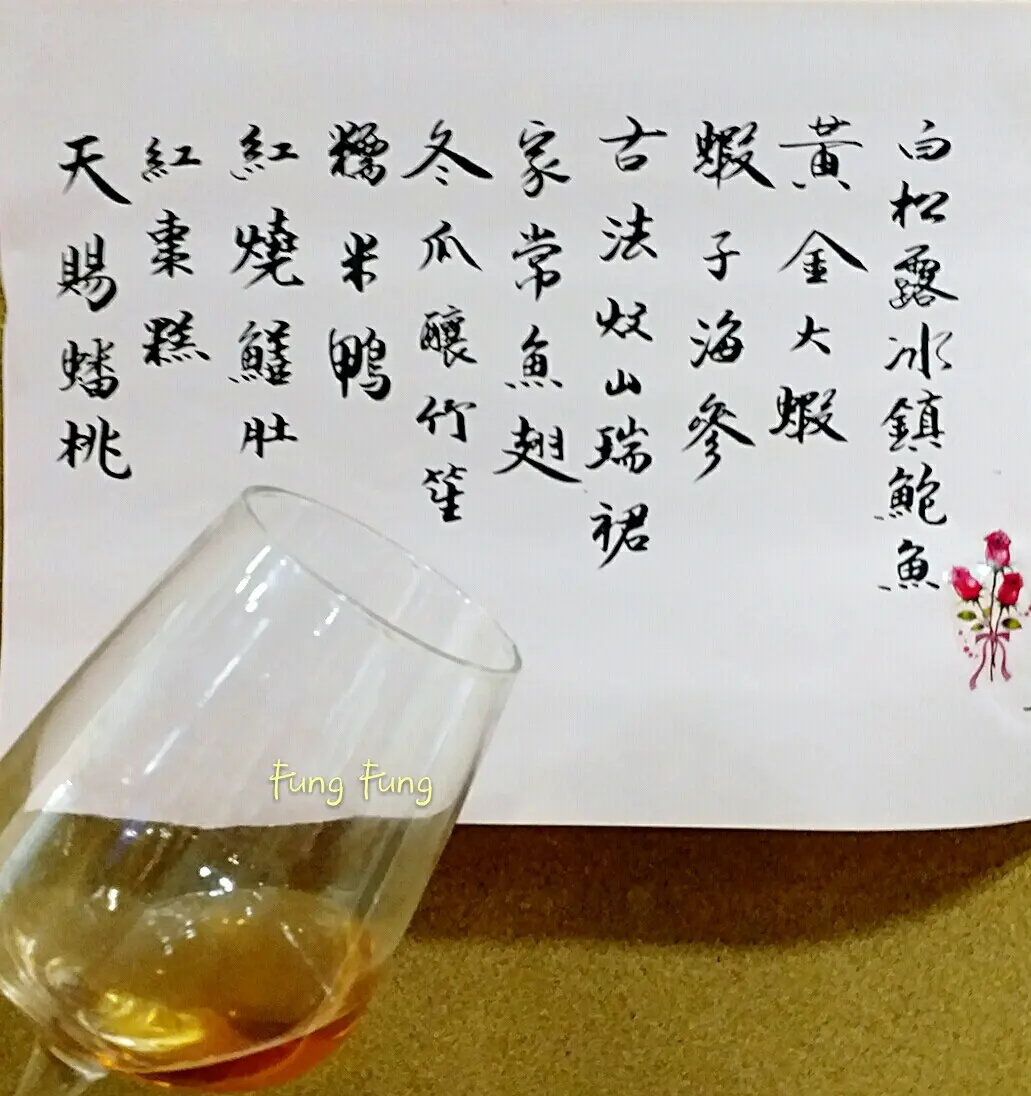 白松露冰鎮鮑魚
黃金大蝦
蝦子海參
古法炆山瑞裙
家常魚翅
冬瓜釀竹笙
糯米鴨
紅燒鱔肚
紅棗糕
天賜蟠桃
Fung Fung